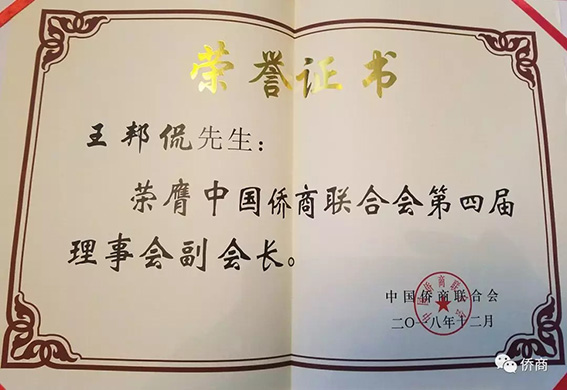 荣誉证书
王邦侃先生：
荣膺中国侨商联合会第四届
理事会副会长。
中国侨商联合会
二〇一八年十二月
侨商